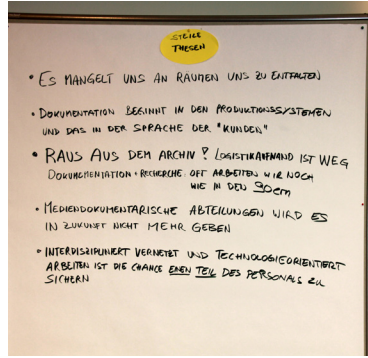 STEILE
THESEN
• ES MANGELT UNS AN RÄUMEN UNS ZU ENTFALTEN
• DOKUMENTATION BEGINNT IN DEN PRODUKTIONSSYSTEMEN
UND DAS IN DER SPRACHE DER "KUNDEN"
• RAUS AUS DEM ARCHIV! LOGISTIKAUFWAND IST WEG
DOKUMENTATION + RECHERCHE: OFT ARBEITEN WIR NOCH
WIE IN DEN 90ern
• MEDIENDOKUMENTARISCHE ABTEILUNGEN WIRD ES
IN ZUKUNFT NICHT MEHR GEBEN
• INTERDISZIPLINIERT VERNETZT UND TECHNOLOGIEORIENTIERT
ARBEITEN IST DIE CHANCE EINEN TEIL DES PERSONALS ZU
SICHERN